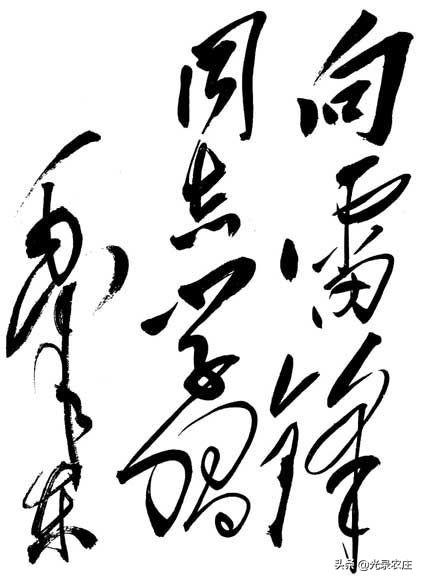 向雷锋
同志学习
毛泽东
头条@光录农庄